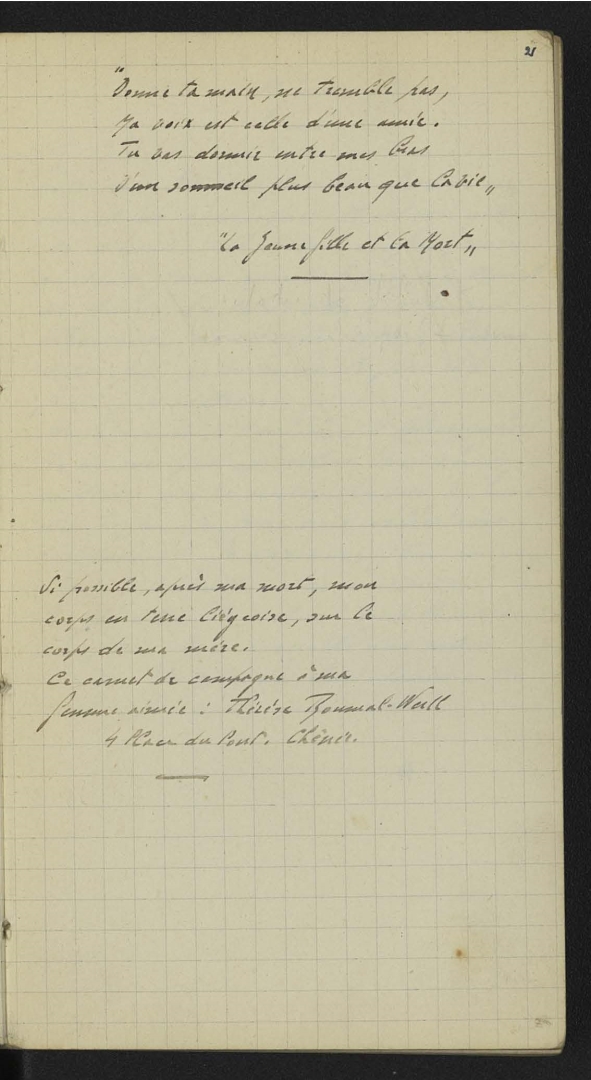 21
"Donne ta main, ne tremble pas,
Ma voix est celle d'une amie.
Tu vas dormir entre mes bras
D'un sommeil plus beau que la vie„
"La Jeune fille et la Mort„
Si possible, après ma mort, mon
corps en terre liégeoise, sur le
corps de ma mère.
Ce carnet de campagne à ma
femme aimée : Thérèse
4 Place du Pont. Chênée.